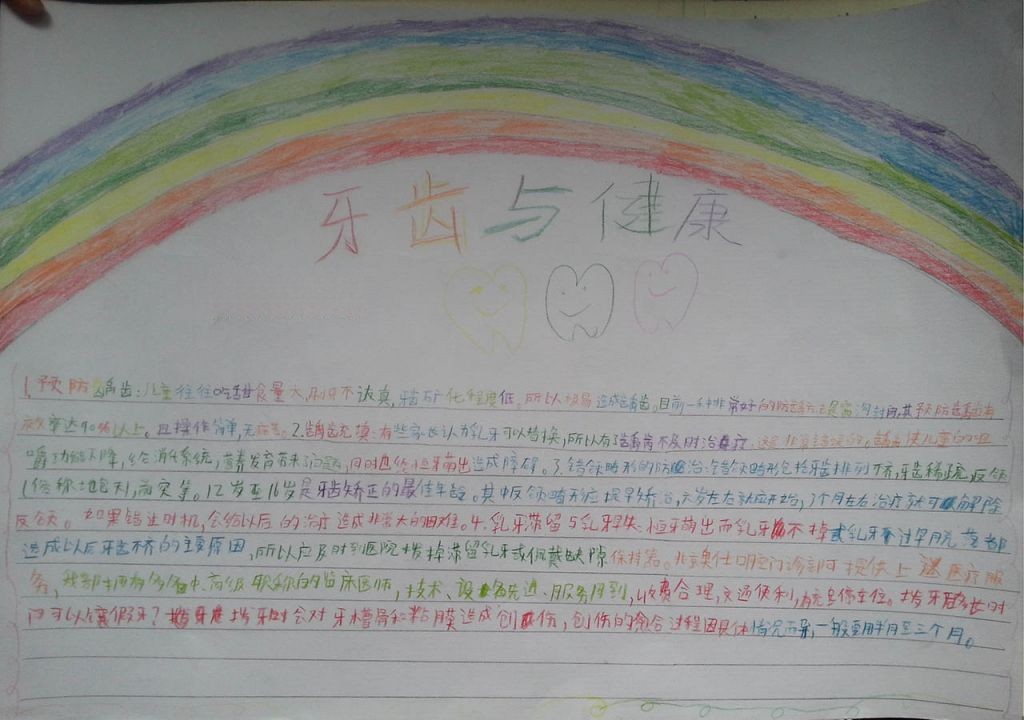 牙齿与健康
1.预防龋齿:儿童往往吃甜食量大,刷牙不认真,牙齿矿化程度低。所以极易造成龋齿。目前一种非常好的防龋方法是窝沟封闭,其预防龋齿有
效率达90%以上。且操作简单,无痛苦。2.龋齿充填:有些家长认为乳牙可以替换,所以有了龋齿不及时治疗,这是非常错误的,龋齿使儿童的咀
嚼功能下降,给消化系统,营养发育带来了问题,同时也给恒牙萌出造成障碍。3.错颌畸形的防治:错颌畸形包括牙齿排列不齐,牙齿稀疏,反颌
(俗称地包天),前突等。12岁至16岁是牙齿矫正的最佳年龄。其中反颌畸形应提早矫治,六岁左右就应开始,3个月左右治疗就可解除
反颌。如果错过时机,会给以后的治疗造成非常大的困难。4.乳牙滞留5乳牙早失:恒牙萌出而乳牙不掉或乳牙过早脱落都
造成以后牙齿不齐的主要原因,所以应及时到医院拔掉滞留乳牙或佩戴缺隙保持器。北京奥仕口腔门诊部可提供上述医疗服
务,我部拥有多名中、高级职称的临床医师,技术、设备先进、服务周到,收费合理,交通便利,有充足停车位。拔牙后多长时
间可以镶假牙?拔牙时会对牙槽骨和粘膜造成创伤,创伤的愈合过程因具体情况而异,一般要用半月至三个月。